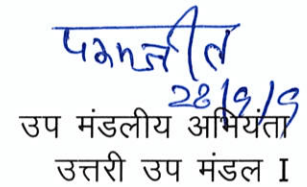 परमजीत
28/9/9
उप मंडलीय अभियंता
उत्तरी उप मंडल I